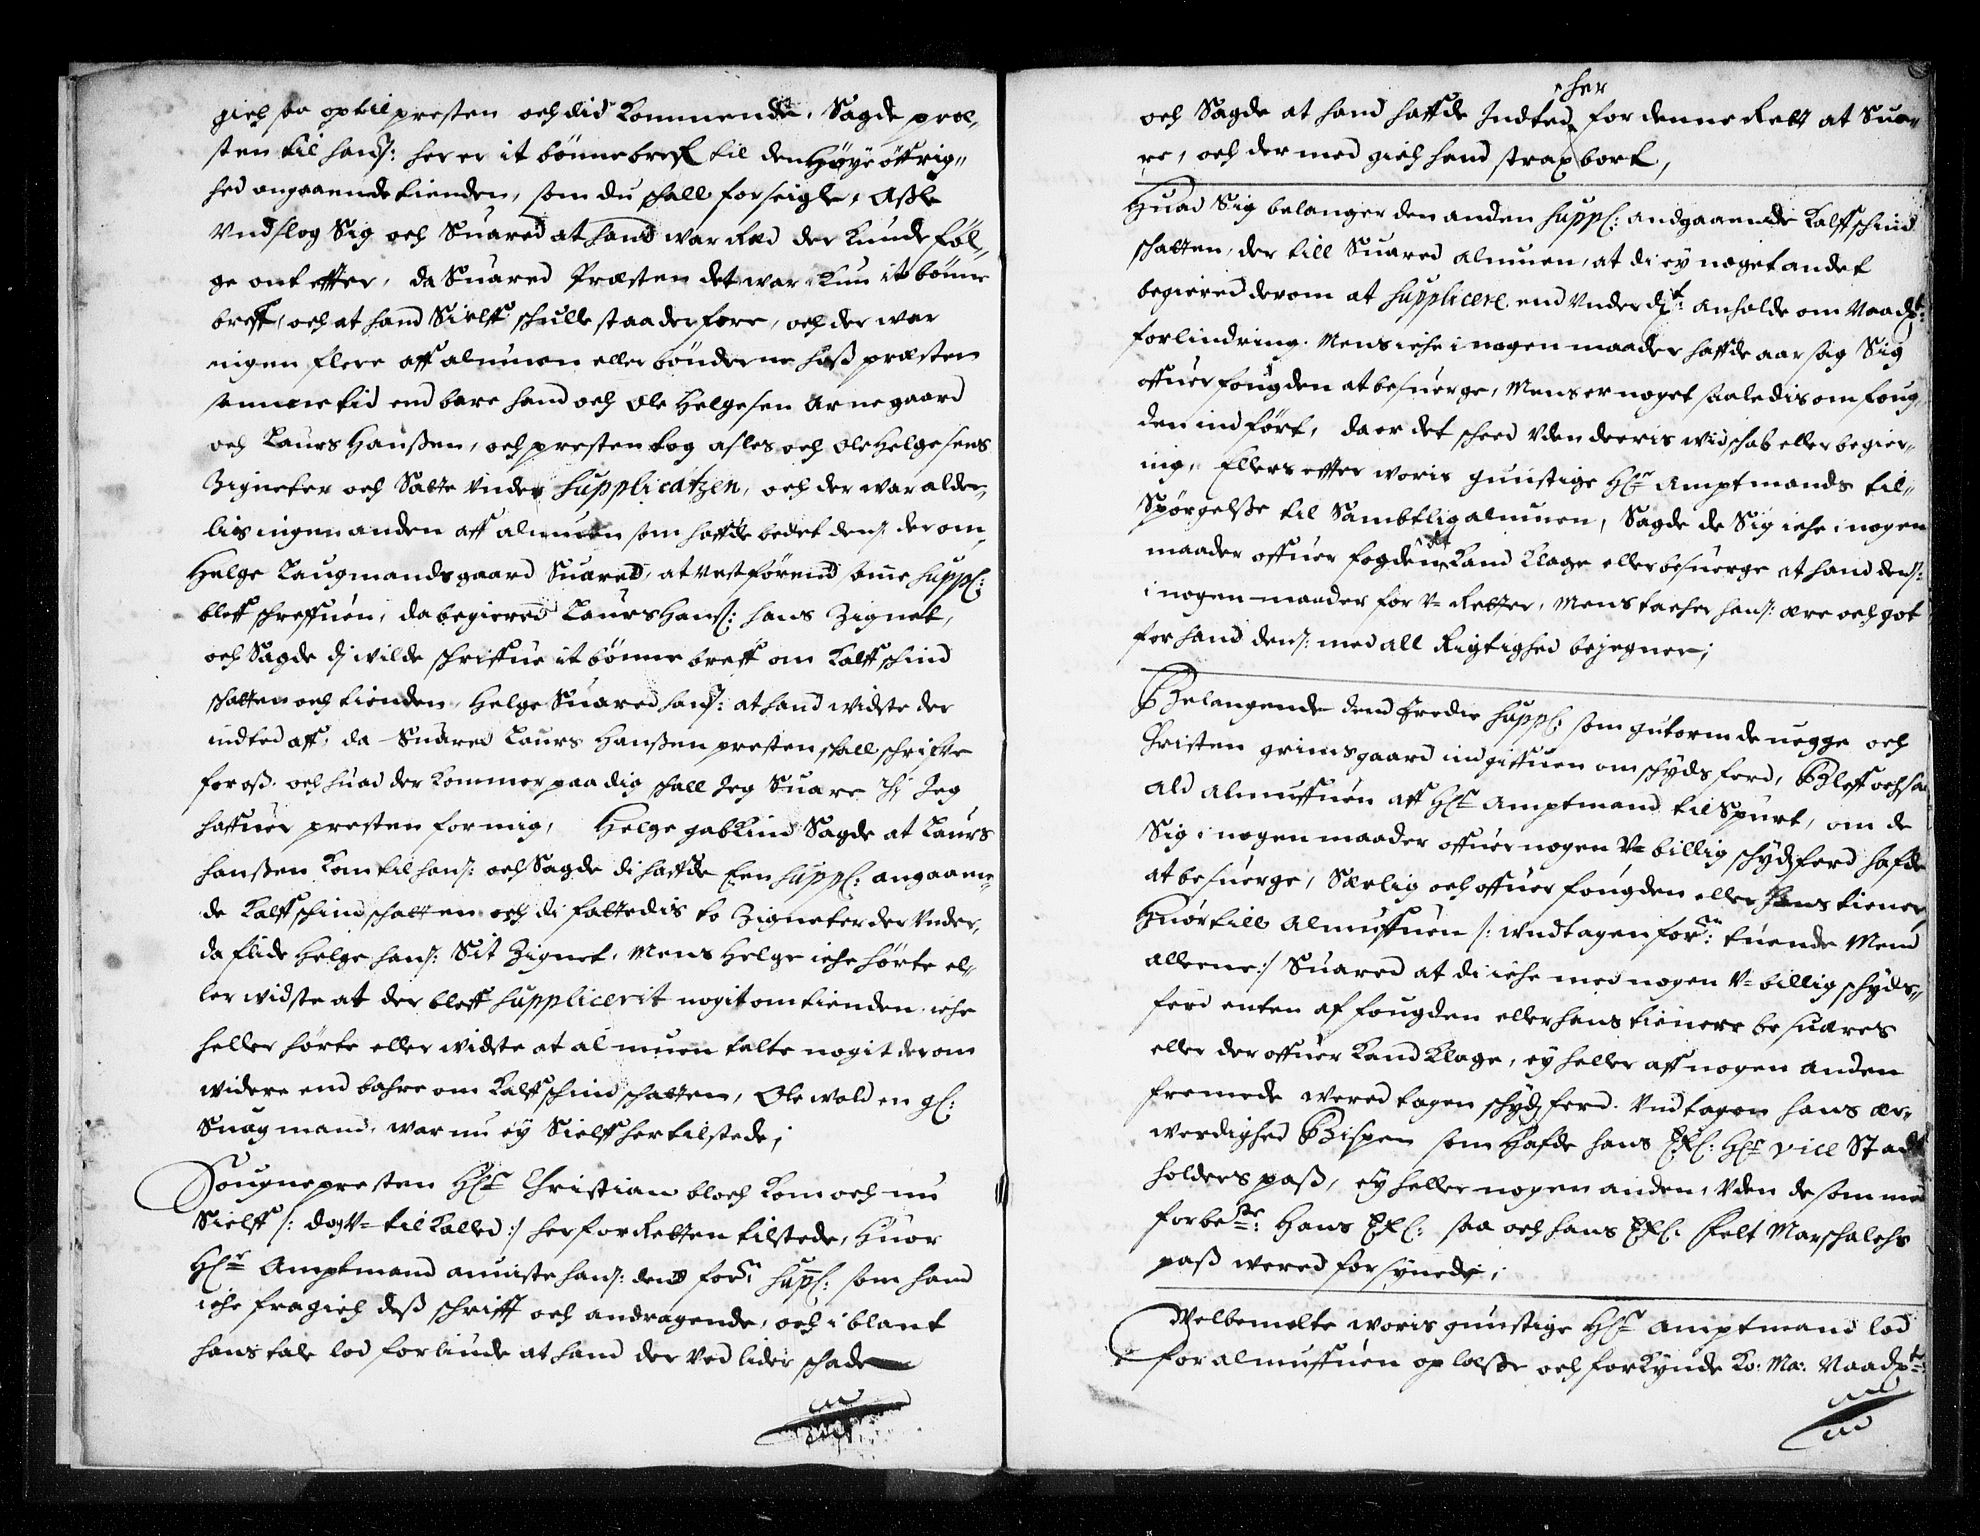 gich saa op til presten och did kommende, Sagde præ„
sten til hanß: her er it bönnebref til den Höÿe öffrig„
hed angaaende tienden, som du schall forseigle, Asle
Vndslog Sig och Suared at hand war Red der kunde föl„
ge ont effter, da Suared Præsten det war kun it bönne
breff, och at hand Sielff schulle staa derfore, och der war
ingen flere aff almuen eller bönderne hoß præsten
samme tid end bare hand och Ole Helgesen Arnegaard
och Laurs Hanßen, och presten tog Asles och Ole Helgesens
Zigneter och Satte Under Supplicatzen, och der war alde„
lis ingen anden aff almuen som haffde bedet denß: derom,
Helge Laugmandsgaard Suared, at nest förend ... Suppl:
bleff schreffuen, da begiered Laurs Hanß: hans Zignet,
och Sagde dj wilde schriffue it bönne breff om Kalffschind
schatten och tienden, Helge Suared hanß: at hand widste der
indted aff, da Suared Laurs Hanßen presten schall schriffue
for oß. och huad der kommer paa dig schall Jeg Suare thj Jeg
haffuer presten for mig, Helge gablind Sagde at Laurs
Hanßen kom til hanß: och Sagde di haffde Een Suppl: angaaen„
de Kalffschind schatten och di fattedis to Zigneter der Vnder,
da flide Helge hanß: Sit Zignet, Mens Helge iche hörte el„
ler widste at der bleff Supplicerit nogit om tienden. iche
heller hörte eller widste at almuen talte nogit derom
widere end bahre om Kalffschind schatten, Ole Wold en gl:
Suag mand, war nu eÿ Sielff her tilstede;
Sougnepresten Hr Christian bloch kom och nu
Sielff /: dog V= til kalled :/ her for Retten tilstede, Huor
Hr Amptmand anuiste hanß: dend forne: Suppl: som hand
iche fragich deß schrifft och andragende, och iblant
hans tale lod forliude at hand der Ved lider schade
och Sagde at hand haffde Indted her for denne Rett at Sua„
re, och der med gich hand strax bort,
Huad Sig belanger den anden Suppl: andgaaende Kalffschind
schatten, der till Suared almuen, at di eÿ noget andet
begiered derom at Supplicere end Underdgt: anholde om Naadgst:
forlindring. Mens iche i nogen maader haffde aarsag Sig
offuer fougden at besuerge, Mens er noget saaledis om foug„
den indfört, da er det scheed Vden deeris widschab eller begier„
ing, Ellers effter woris gunstige Hr Amptmands til„
Spörgelße til Sambtlig almuen, Sagde de Sig iche i nogen
maader offuer fogden at kand klage eller besuerge at hand denß:
i nogen maader for V= Retter, Mens tacher hanß: ære och got
for hand denß: med all Rigtighed bejegner;
Belangende dend tredie Suppl: som gutorm de negge och
Christen grimsgaard indgiffuen om schÿds ferd, Bleff och saa
ald almuffuen aff Hr Amptmand tilSpurt, om de
Sig i nogen maader offuer nogen V= billig schÿdsferd hafde
at besuerge, Særlig och offuer fougden eller hans tiener
Huortill Almuffuen /: Vndtagen forne: tuende Mend
alleene :/ Suared at di iche med nogen V= billig schÿds„
ferd enten af fougden eller hans tienere besuares
eller der offuer kand klage, eÿ heller aff nogen anden
fremede wered tagen schÿds ferd. Vndtagen hans ær„
werdighed Bispen som hafde hans Exl: Hr Vice Stadt
holders paß, eÿ heller nogen anden, Vden de som med
forbete: Hans Exl: saa och hans Exl: Felt Marschalchs
paß wered forsÿnede;
Welbemelte woris gunstige Hr Amptmand lod
for almuffuen oplæße och forkÿnde Ko: Ma: Naadgste: